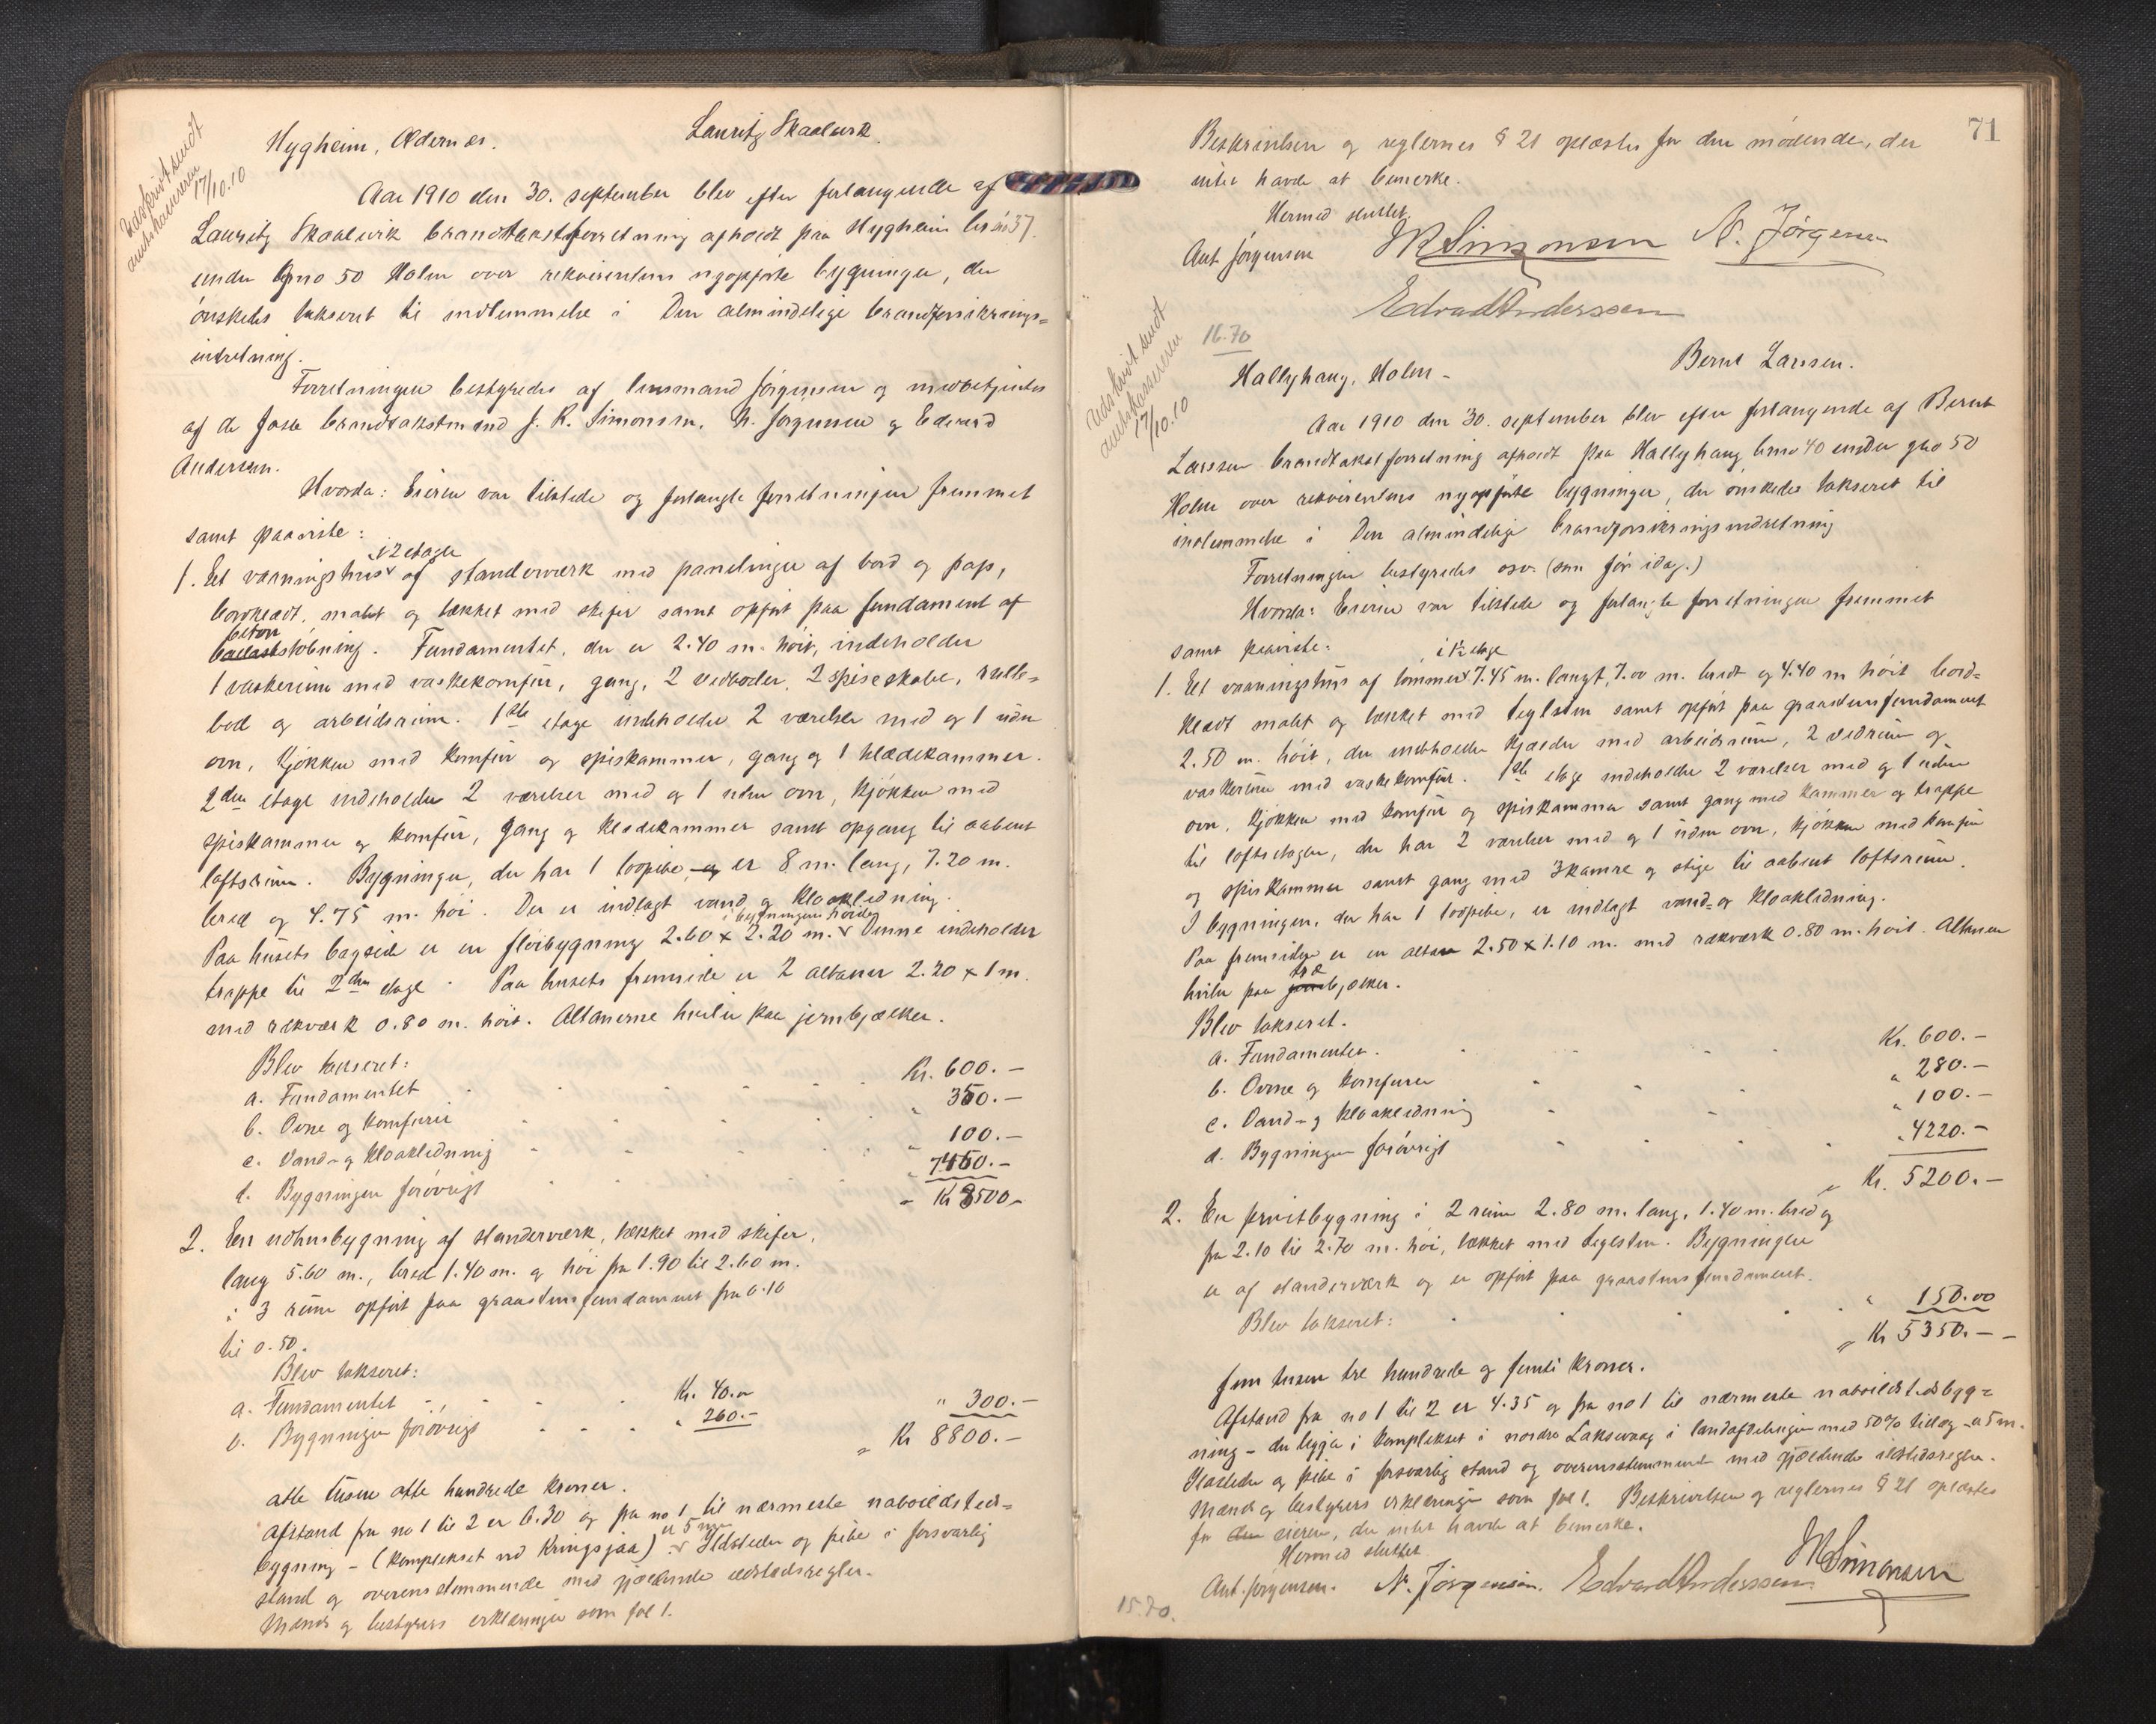 Udskrivt sendt
amtskassereren
17/10.10
Hygheim, Ødernes. Lauritz Skaalevik
Aar 1910 den 30. september blev efter forlangende af
Lauritz Skaalevik brandtakstforretning afholdt paa Hygheim brno 37
under gno 50 Holm over rekvirentens nyopførte bygninger, der
ønskedes takseret til indlemmelse i Den almindelige brandforsikrings=
indretning.
Forretningen bestyredes af lensmand Jørgensen og medbetjentes
af de faste brandtakstmænd J. R. Simonsen, N. Jørgensen og Edvard
Andersen.
Hvorda: Eieren var tilstede og forlangte forretningen fremmet
samt paaviste:
1. Et vaaningshus i 2 etager af standerværk med panelinger af bord og pap,
bordklædt, malet og tækket med skifer samt opført paa fundament af
beton
ballaststøbning. Fundamentet, der er 2.40 m. høit, indeholder
1 vaskerum med vaskekomfur, gang, 2 vedboder, 2 spiseskabe, rulle=
bod og arbeidsrum. 1ste etage indeholder 2 værelser med og 1 uden
ovn, kjøkken med komfur og spiskammer, gang og 1 klædekammer.
2den etage indeholder 2 værelser med og 1 uden ovn, kjøkken med
spiskammer og komfur, gang og klædekammer samt opgang til aabent
loftsrum. Bygningen, der har 1 løbpibe, og er 8 m. lang, 7.20 m.
bred og 4.75 m. høi. Der er indlagt vand og kloakledning.
i bygningens høide
Paa husets bagside er en fløibygning 2.60 x 2.20 m. Denne indeholder
trappe til 2den etage. Paa husets fremside er 2 altaner 2.20 x 1 m.
med rækværk 0.80 m. høit. Altanerne hviler paa jernbjælker.
Blev takseret:
a. Fundamentet Kr. 600.-
b. Ovne og komfurer " 350.-
c. Vand- og kloakledning " 100.-
d. Bygningen forøvrigt " 7450.-
= Kr 8500.-
2. En udhusbygning af standerværk, tækket med skifer,
lang 5.60 m., bred 1.40 m. og høi fra 1.90 til 2.60 m.
i 3 rum opført paa graastensfundament fra 0.10
til 0.50.
Blev takseret:
a. Fundamentet Kr. 40.-
b. Bygningen forøvrigt " 260.- " 300.-
= Kr 8800.-
otte tusen otte hundrede kroner.
Afstand fra no 1 til 2 er 6.30 og fra no 1 til nærmeste naboildsteds=
bygning - (komplekset ved Kringsjaa) er 5 m. Ildsteder og pibe i forsvarlig
stand og overensstemmende med gjældende ildstedsregler.
Mænds og bestyrers erklæringer som fol 1.
71
Beskrivelsen og reglernes § 21 oplæstes for den mødende, der
intet havde at bemerke.
Hermed sluttet.
Ant. Jørgensen JR Simonsen N. Jörgensen
Edvard Anderssen
16.70
Udskrivt sendt
amtskassereren
17/10.10
Hallyhaug, Holm - Bernt Larssen.
Aar 1910 den 30. september blev efter forlangende af Bernt
Larssen brandtakstforretning afholdt paa Hallyhaug brno 40 under gno 50
Holm over rekvirentens nyopførte bygninger, der ønskedes takseret til
indlemmelse i Den almindelige brandforsikringsindretning
Forretningen bestyredes osv. (som før idag.)
Hvorda: Eieren var tilstede og forlangte forretningen fremmet
samt paaviste:
1. Et vaaningshus af tømmer i 1½ etage 7.45 m. langt, 7.00 m. bredt og 4.40 m høit bord=
klædt malet og tækket med teglsten samt opført paa graastensfundament
2.50 m. høit, der indeholder kjælder med arbeidsrum, 2 vedrum og
vaskerum med vaskekomfur. 1ste etage indeholder 2 værelser med og 1 uden
ovn, kjøkken med komfur og spiskammer samt gang med kammer og trappe
til loftsetagen, der har 2 værelser med og 1 uden ovn, kjøkken med komfur
og spiskammer samt gang med 3 kamre og stige til aabent loftsrum.
I bygningen, der har 1 løbpibe, er indlagt vand= og kloakledning.
Paa fremsiden er en altan 2.50 x 1.10 m. med rækværk 0.80 m. høit. Altanen
hviler paa jern træbjælker.
Blev takseret.
a. Fundamentet. Kr. 600.-
b. Ovne og komfurer " 280.-
c. Vand- og kloakledning " 100.-
d. Bygningen forøvrigt " 4220.-
= Kr. 5200.-
2. En privetbygning i 2 rum 2.80 m. lang, 1.40 m. bred og
fra 2.10 til 2.70 m. høi, tækket med teglsten. Bygningen
er af standerværk og er opført paa graastensfundament.
Blev takseret: " 150.00
= Kr 5350.-
fem tusen tre hundrede og femti kroner.
Afstand fra no 1 til 2 er 4.35 og fra no 1 til nærmeste naboildstedsbyg=
ning - der ligger i komplekset i nordre Laksevaag i landafdelingen med 50% tillæg - er 5 m.
Ildsteder og pibe i forsvarlig stand og overensstemmende med gjældende ildstedsregler.
Mænds og bestyrers erklæringer som fol 1. Beskrivelsen og reglernes § 21 oplæstes
for den eieren, der intet havde at bemerke.
Hermed sluttet.
Ant. Jørgensen. N. Jörgensen. Edvard Anderssen JR Simonsen
15.70.